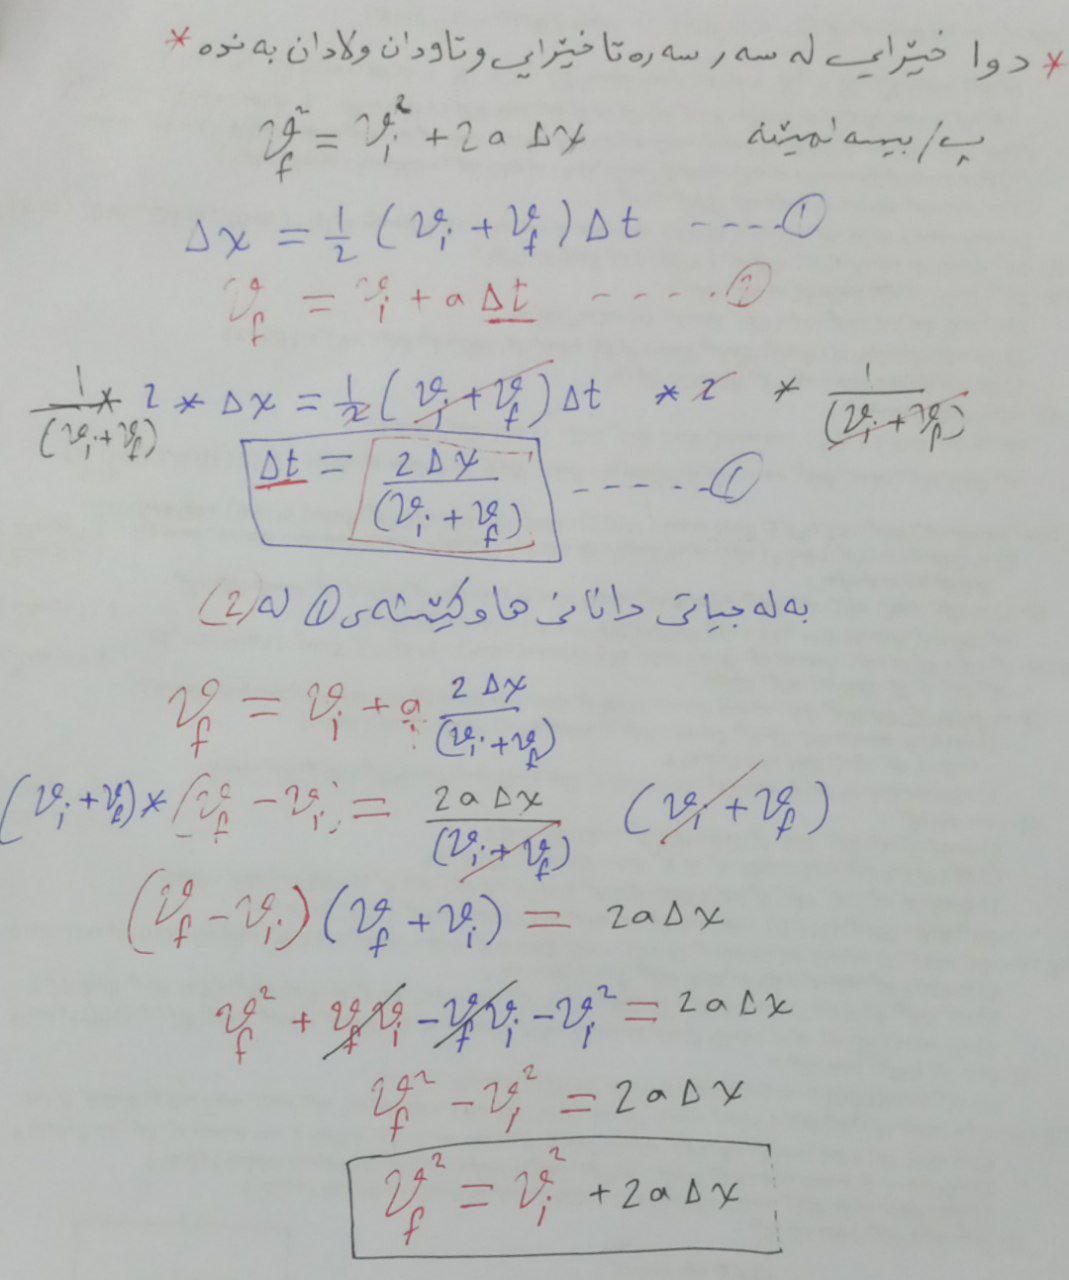 * دوا خێرایی لە سەر سەرەتا خێرایی و تاودان و لادان بەندە *
v_f² = v_i² + 2a Δx پ/ بیسەلمێنە
Δx = 1/2 (v_i + v_f) Δt ----①
v_f = v_i + a Δt ----②
1/(v_i+v_f) * 2 * Δx = 1/2 (v_i + v_f) Δt * 2 * 1/(v_i + v_f)
Δt = 2Δx/(v_i + v_f) -----①
بە لە جیاتی دانانی هاوکێشەی ① لە (2)
v_f = v_i + a 2Δx/(v_i + v_f)
(v_i + v_f) * (v_f - v_i) = 2aΔx/(v_i + v_f) (v_i + v_f)
(v_f - v_i) (v_f + v_i) = 2aΔx
v_f² + v_f v_i - v_f v_i - v_i² = 2aΔx
v_f² - v_i² = 2aΔx
v_f² = v_i² + 2aΔx